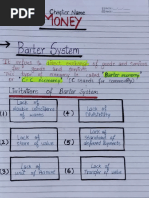 Chapter Name
MONEY
→ Barter System
It refers to direct exchange of goods and services
for goods and services.
This type of economy is called "Barter economy
or "C.C. economy" (C stands for commodity)
Limitations of Barter System
(1) Lack of double coincidence of wants
(4) Lack of Divisibility
(2) Lack of store of value
(5) Lack of standard of deferred payment
(3) Lack of unit of account
(6) Lack of Transfer of value